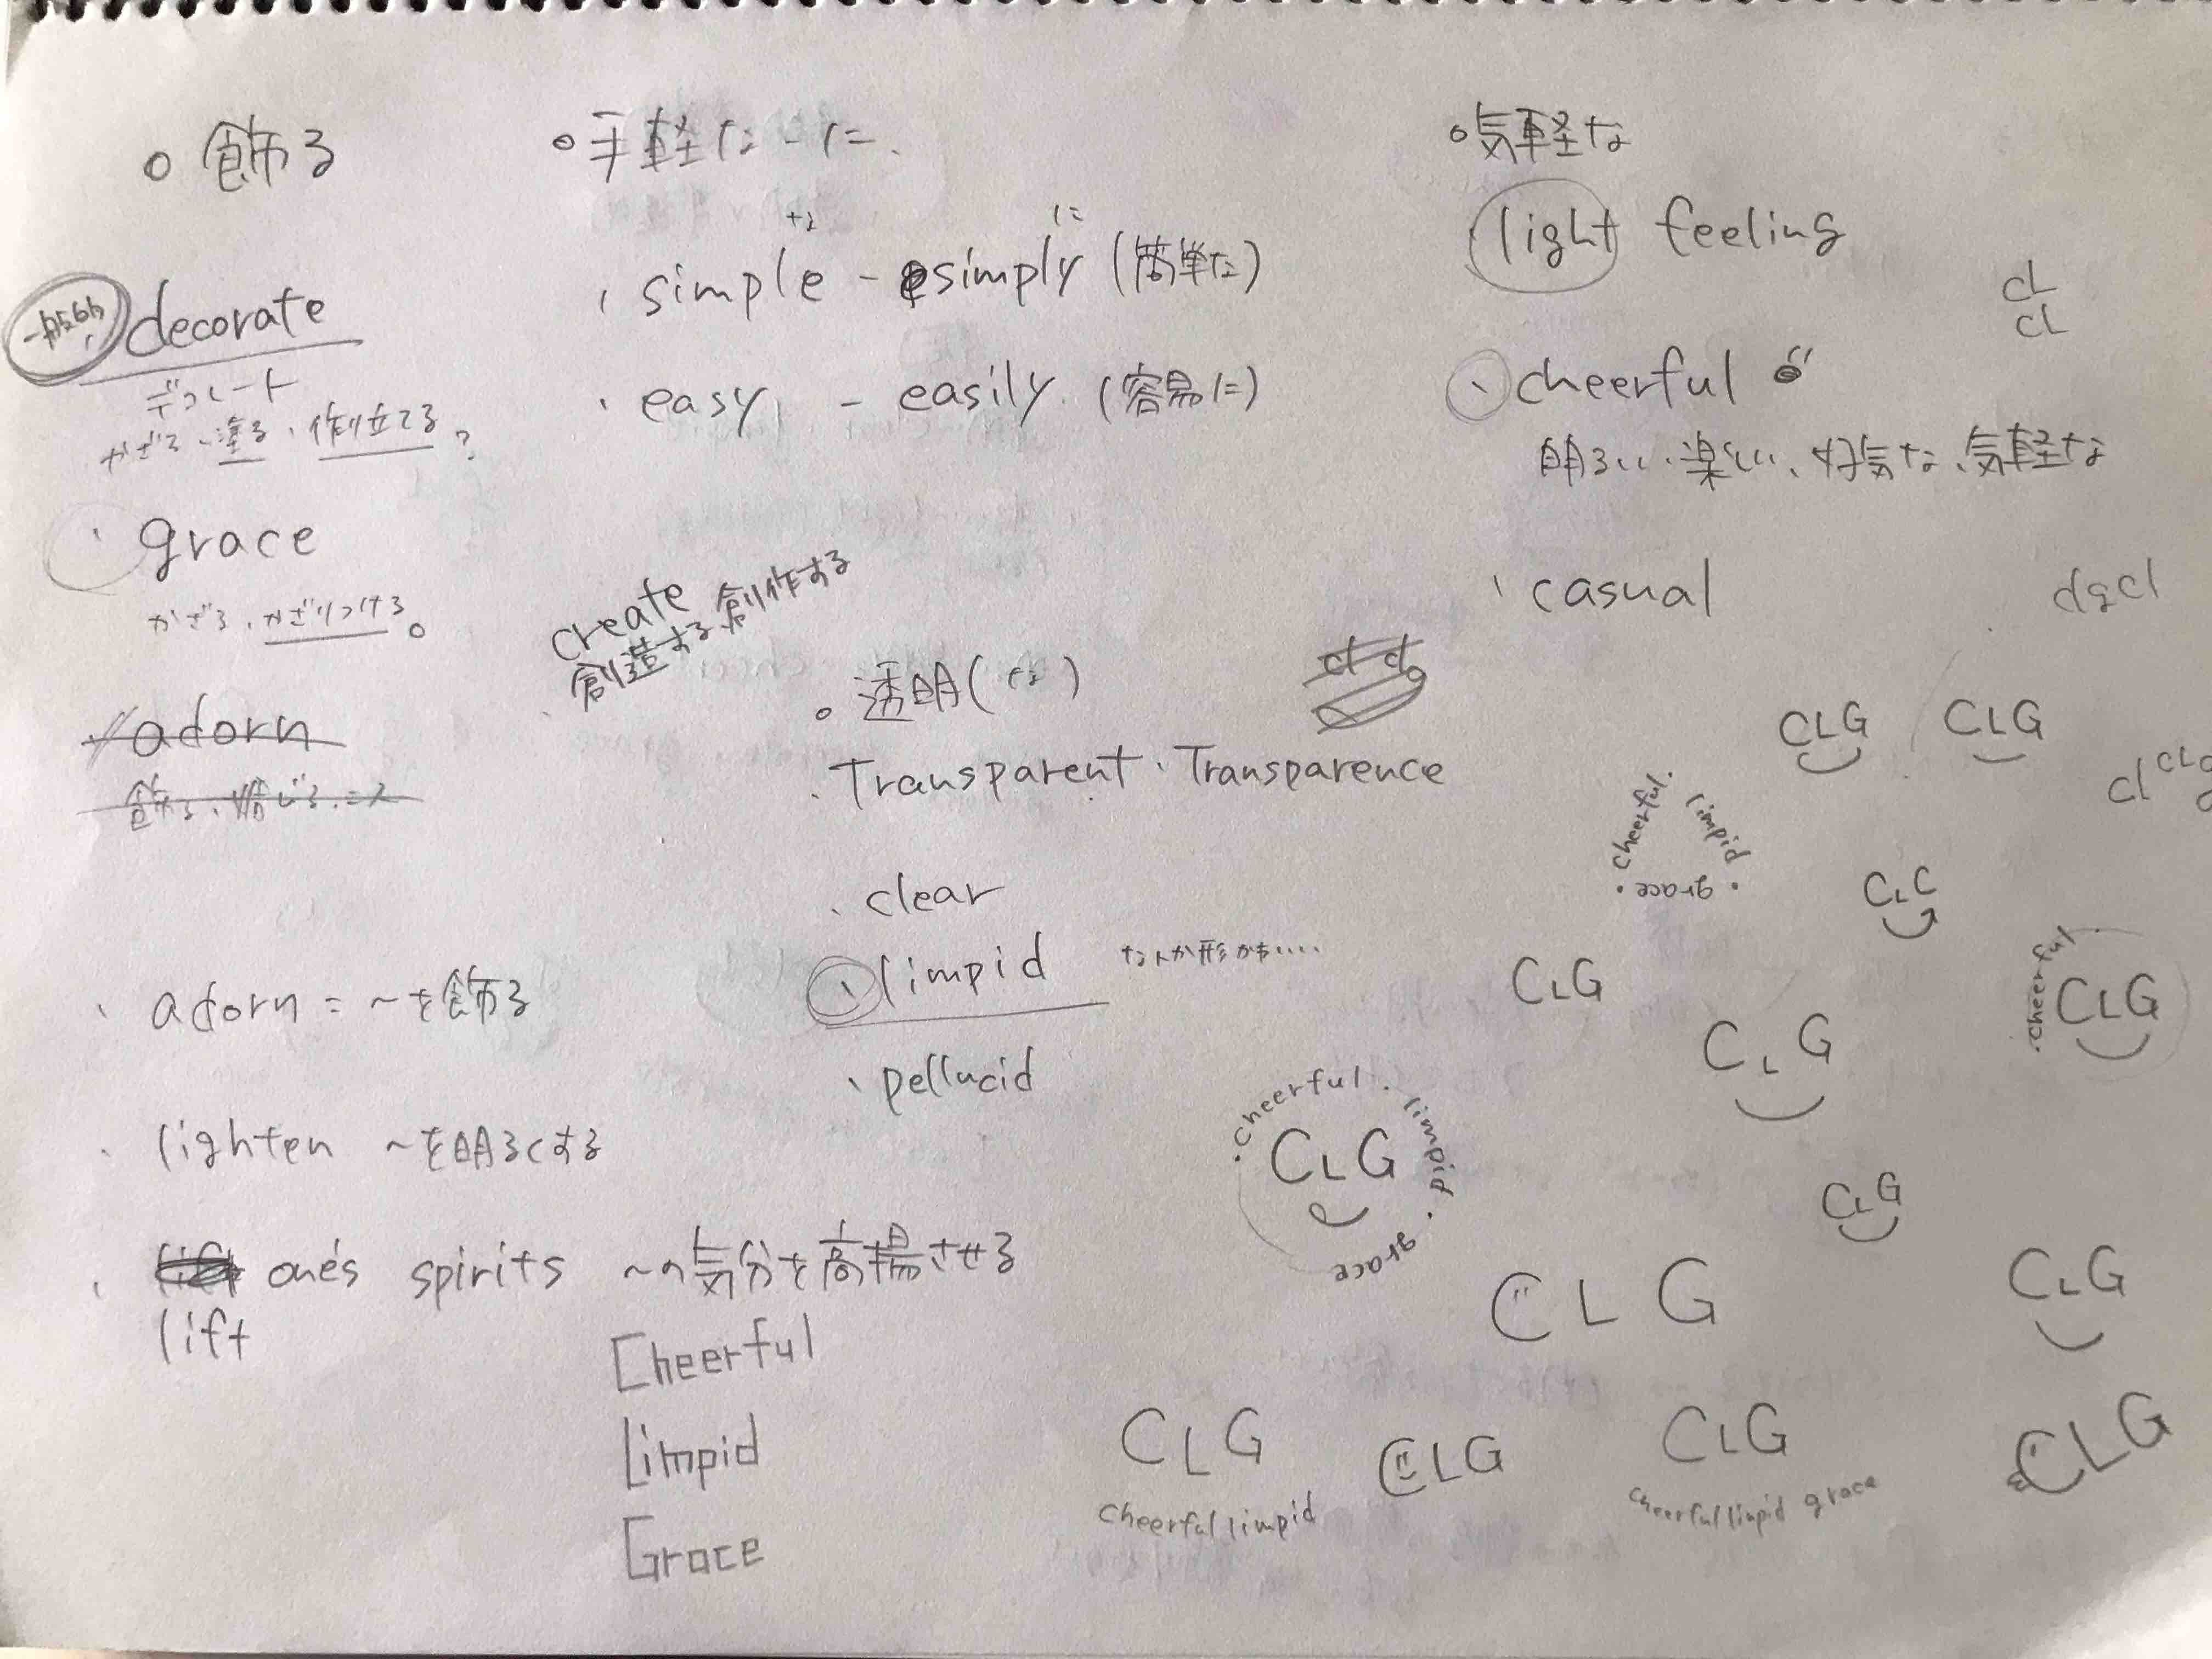 飾る
一般的
decorate
デコレート
かざる、塗る、作り立てる?
grace
かざる、かざりつける。
adorn
adorn = ~を飾る
lighten ~を明るくする
lift one's spirits ~の気分を高揚させる
手軽な-に、
な に
simple - simply (簡単な)
easy - easily (容易に)
create
創造する、創作する
透明(な)
Transparent . Transparence
clear
limpid なんか形がもい....
pellucid
Cheerful
Limpid
Grace
気軽な
light feeling
cheerful
明るい、楽しい、好気な、気軽な
casual
cL
cL
dgcl
CLG
CLG
cl
CLG
cheerful. limpid. grace.
CLC
CLG
cheerful.
CLG
CLG
cheerful. limpid. grace
CLG
CLG
CLG
CLG
CLG
cheerful limpid
CLG
CLG
cheerful limpid grace
CLG